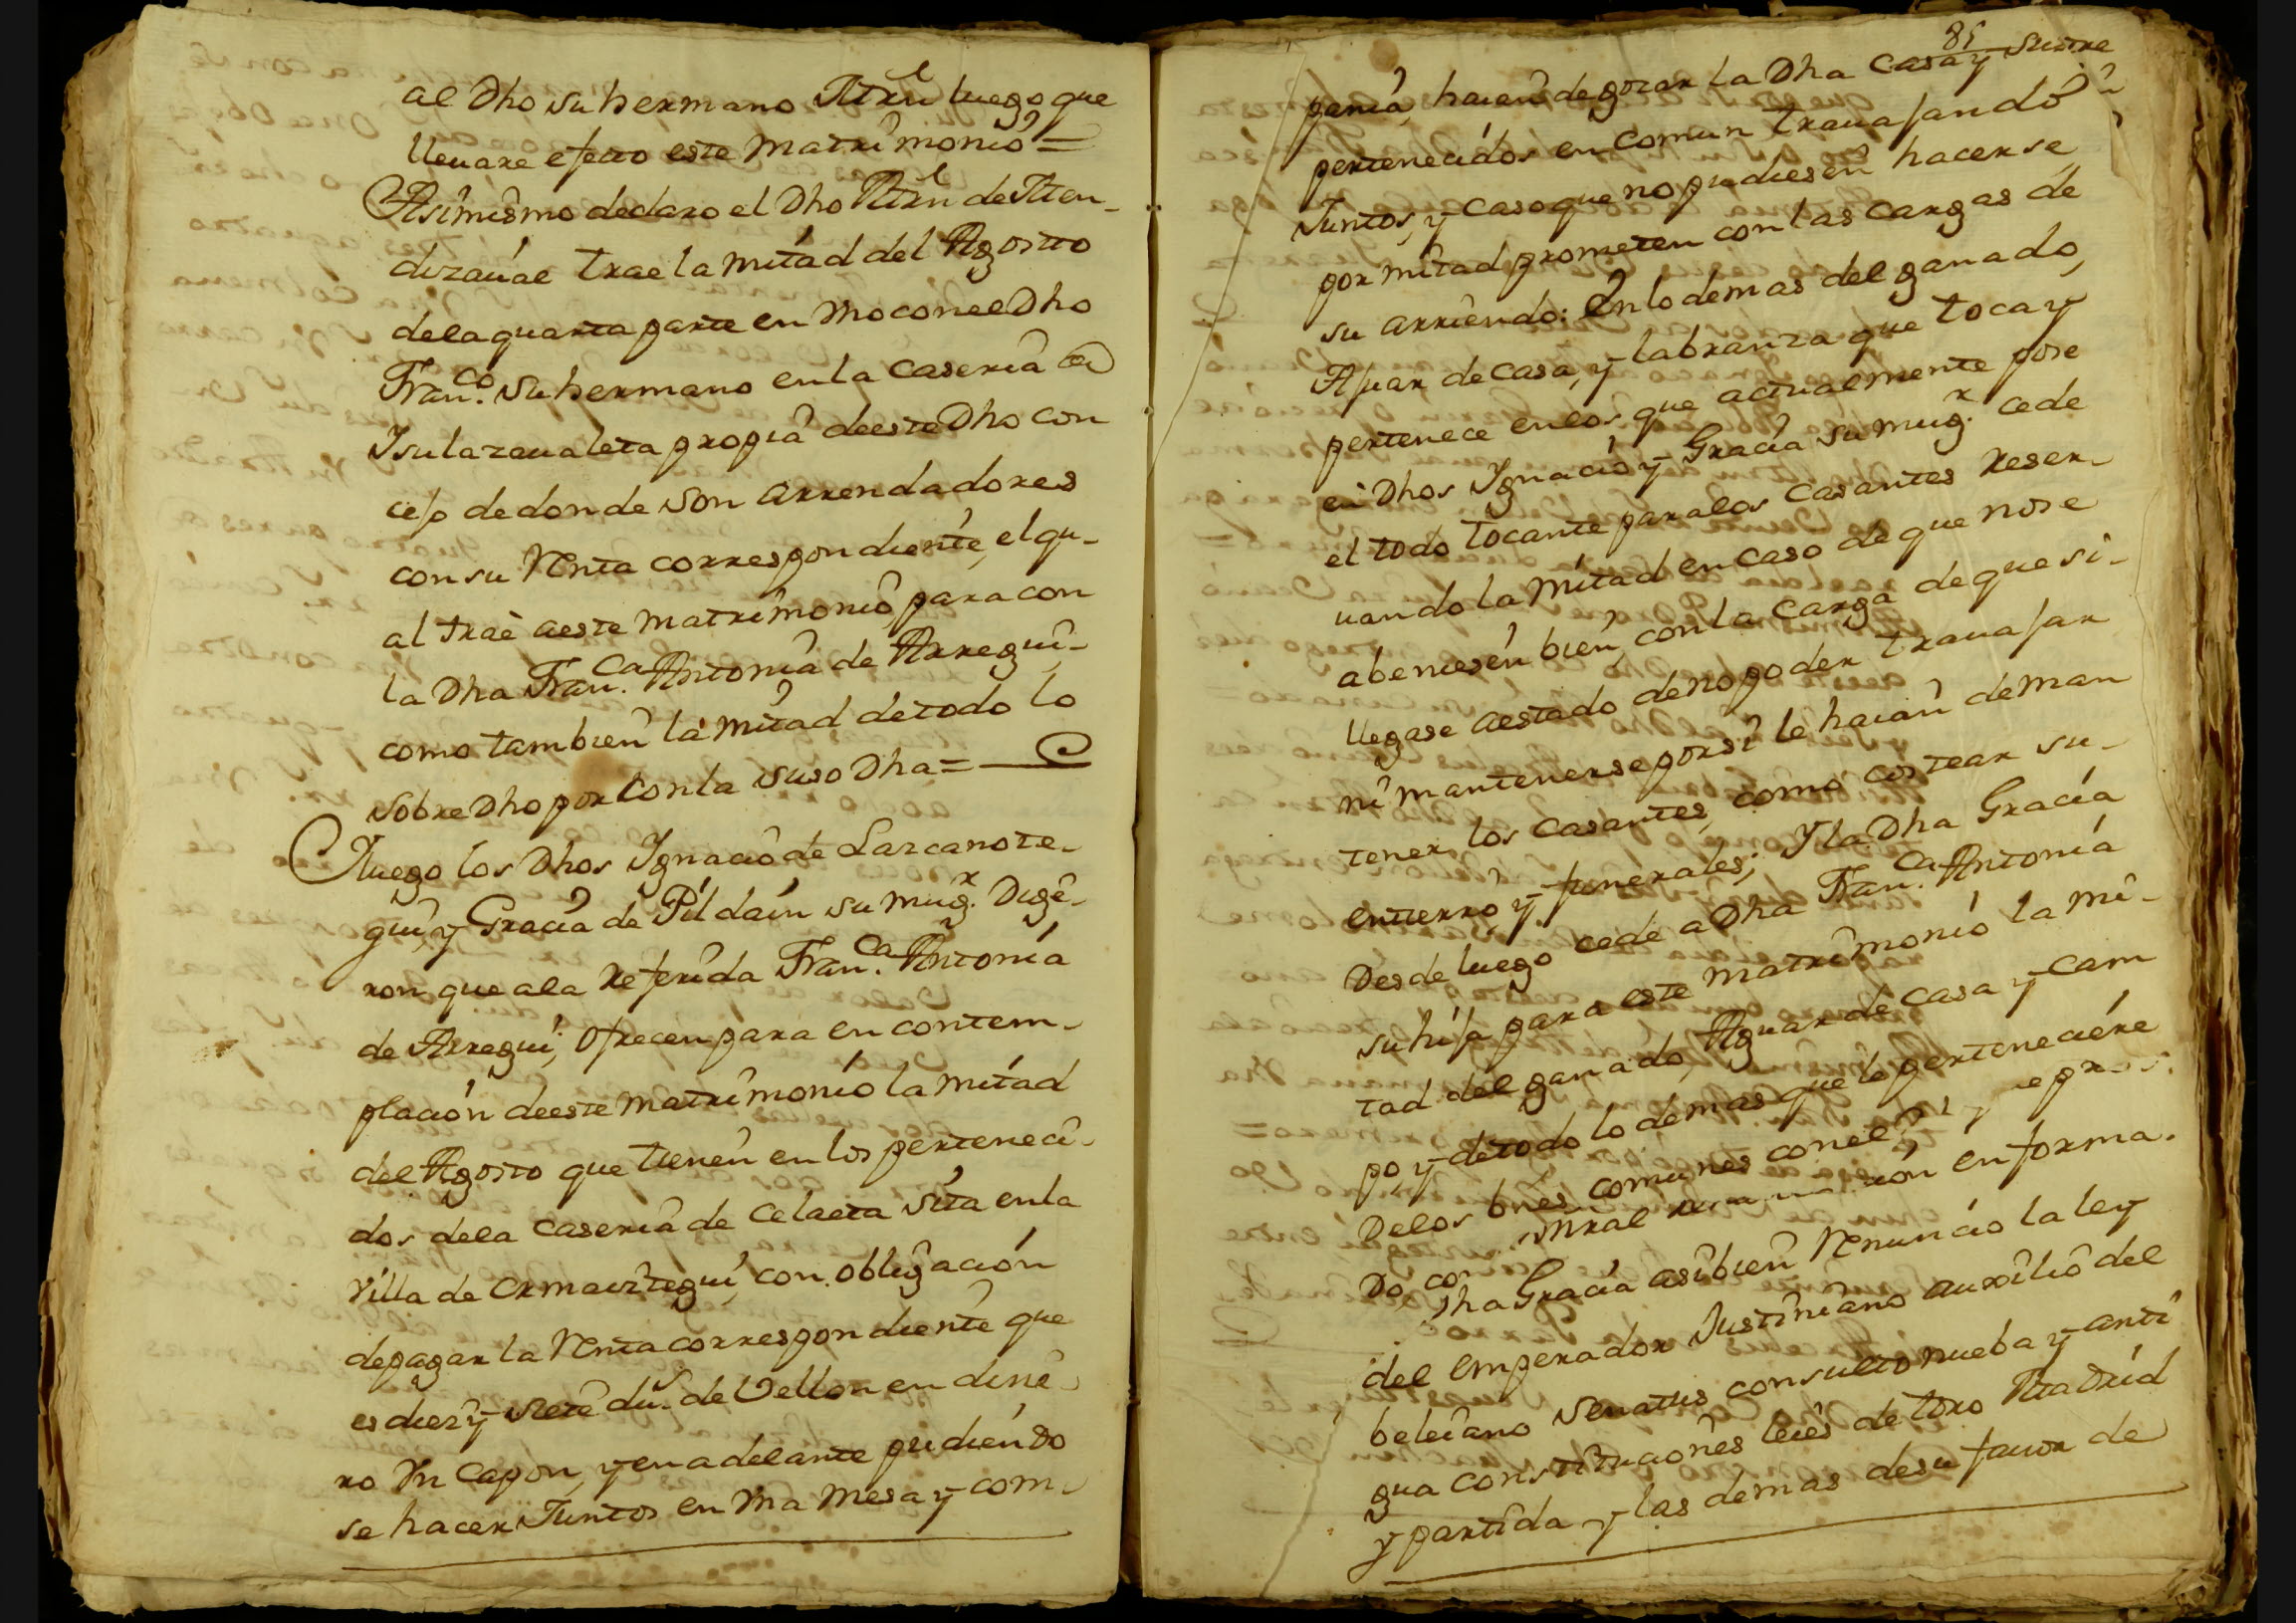 al Dho su hermano Mrñ luego que
lleuare efecto este Matrimonio =
Asimismo declaro el Dho Mrñ de Men-
dizaual trae la mitad del Agosto
dela quarta parte en Vno con el Dho
Fran.co su hermano en la caseria de
Ysulazaualeta propia de este Dho con
cejo de donde son arrendadores
con su Renta correspondiente, el qu-
al trae a este matrimonio, para con
la Dha Fran.ca Antonia de Arregui-
como tambien la mitad de todo lo
sobre Dho por con la suso Dha =
Y luego los Dhos Ygnacio de Larcanote-
gui, y Gracia de Pildain su mug.r Dige-
ron que ala Referida Fran.ca Antonia
de Arregui, ofrecen para en contem-
placion de este Matrimonio la mitad
del Agosto que tienen en los perteneci-
dos dela caseria de Celaeta sita en la
Villa de Ormaiztegui, con obligacion
de pagar la Renta correspondiente que
es diez y siete du.s de Vellon en dine-
ro Vn Capon, y en adelante pudiendo
se hacer Juntos en Vna Mesa y com-
85
pania, haian de gozar la Dha Casa y sus
pertenecidos en comun trauajando
Juntos, y caso que no pudiesen hacerse
por mitad prometen con las cargas de
su arriendo: En lo demas del ganado,
Ajuar de casa, y labranza que toca y
pertenece en los que actualmente pose
en Dhos Ygnacio y Gracia su mug.r cede
el todo tocante para los casantes reser-
uando la Mitad en caso de que no se
abeniesen bien, con la carga de que si-
llegase a estado de no poder trauajar
ni mantenerse por si le haian de man
tener los casantes, como costear su-
entierro, y funerales; Y la Dha Gracia
Desde luego cede a Dha Fran.ca Antonia
su hija para este Matrimonio la mi-
tad del ganado, Aguar de casa y cam
po, y de todo lo demas que le perteneciere
De los bñes comunes con el
Do con mral cion en forma.
Dha Gracia asibien Renuncio la ley
del emperador Justiniano auxilio del
beleiano senatus consulto nueba y anti
gua constituciones leies de toro Madrid
y partida y las demas de su fauor de